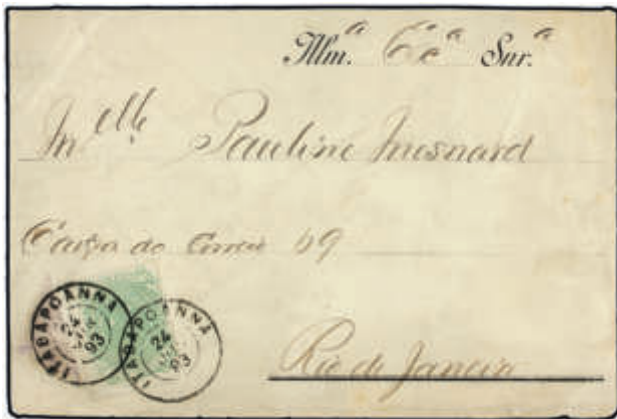 Illm.ª Eᶜª Snr.ª
Mˡˡᵉ Pauline Mesnard
Caixa do Correio 69
Rio de Janeiro
ITABAPOANNA
24
93
ITABAPOANNA
24
93